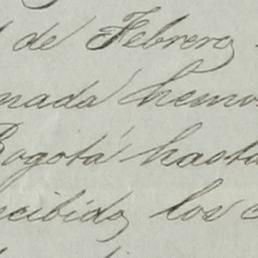 de Febrero
nada hemos
Bogotá hasta
cibido, los